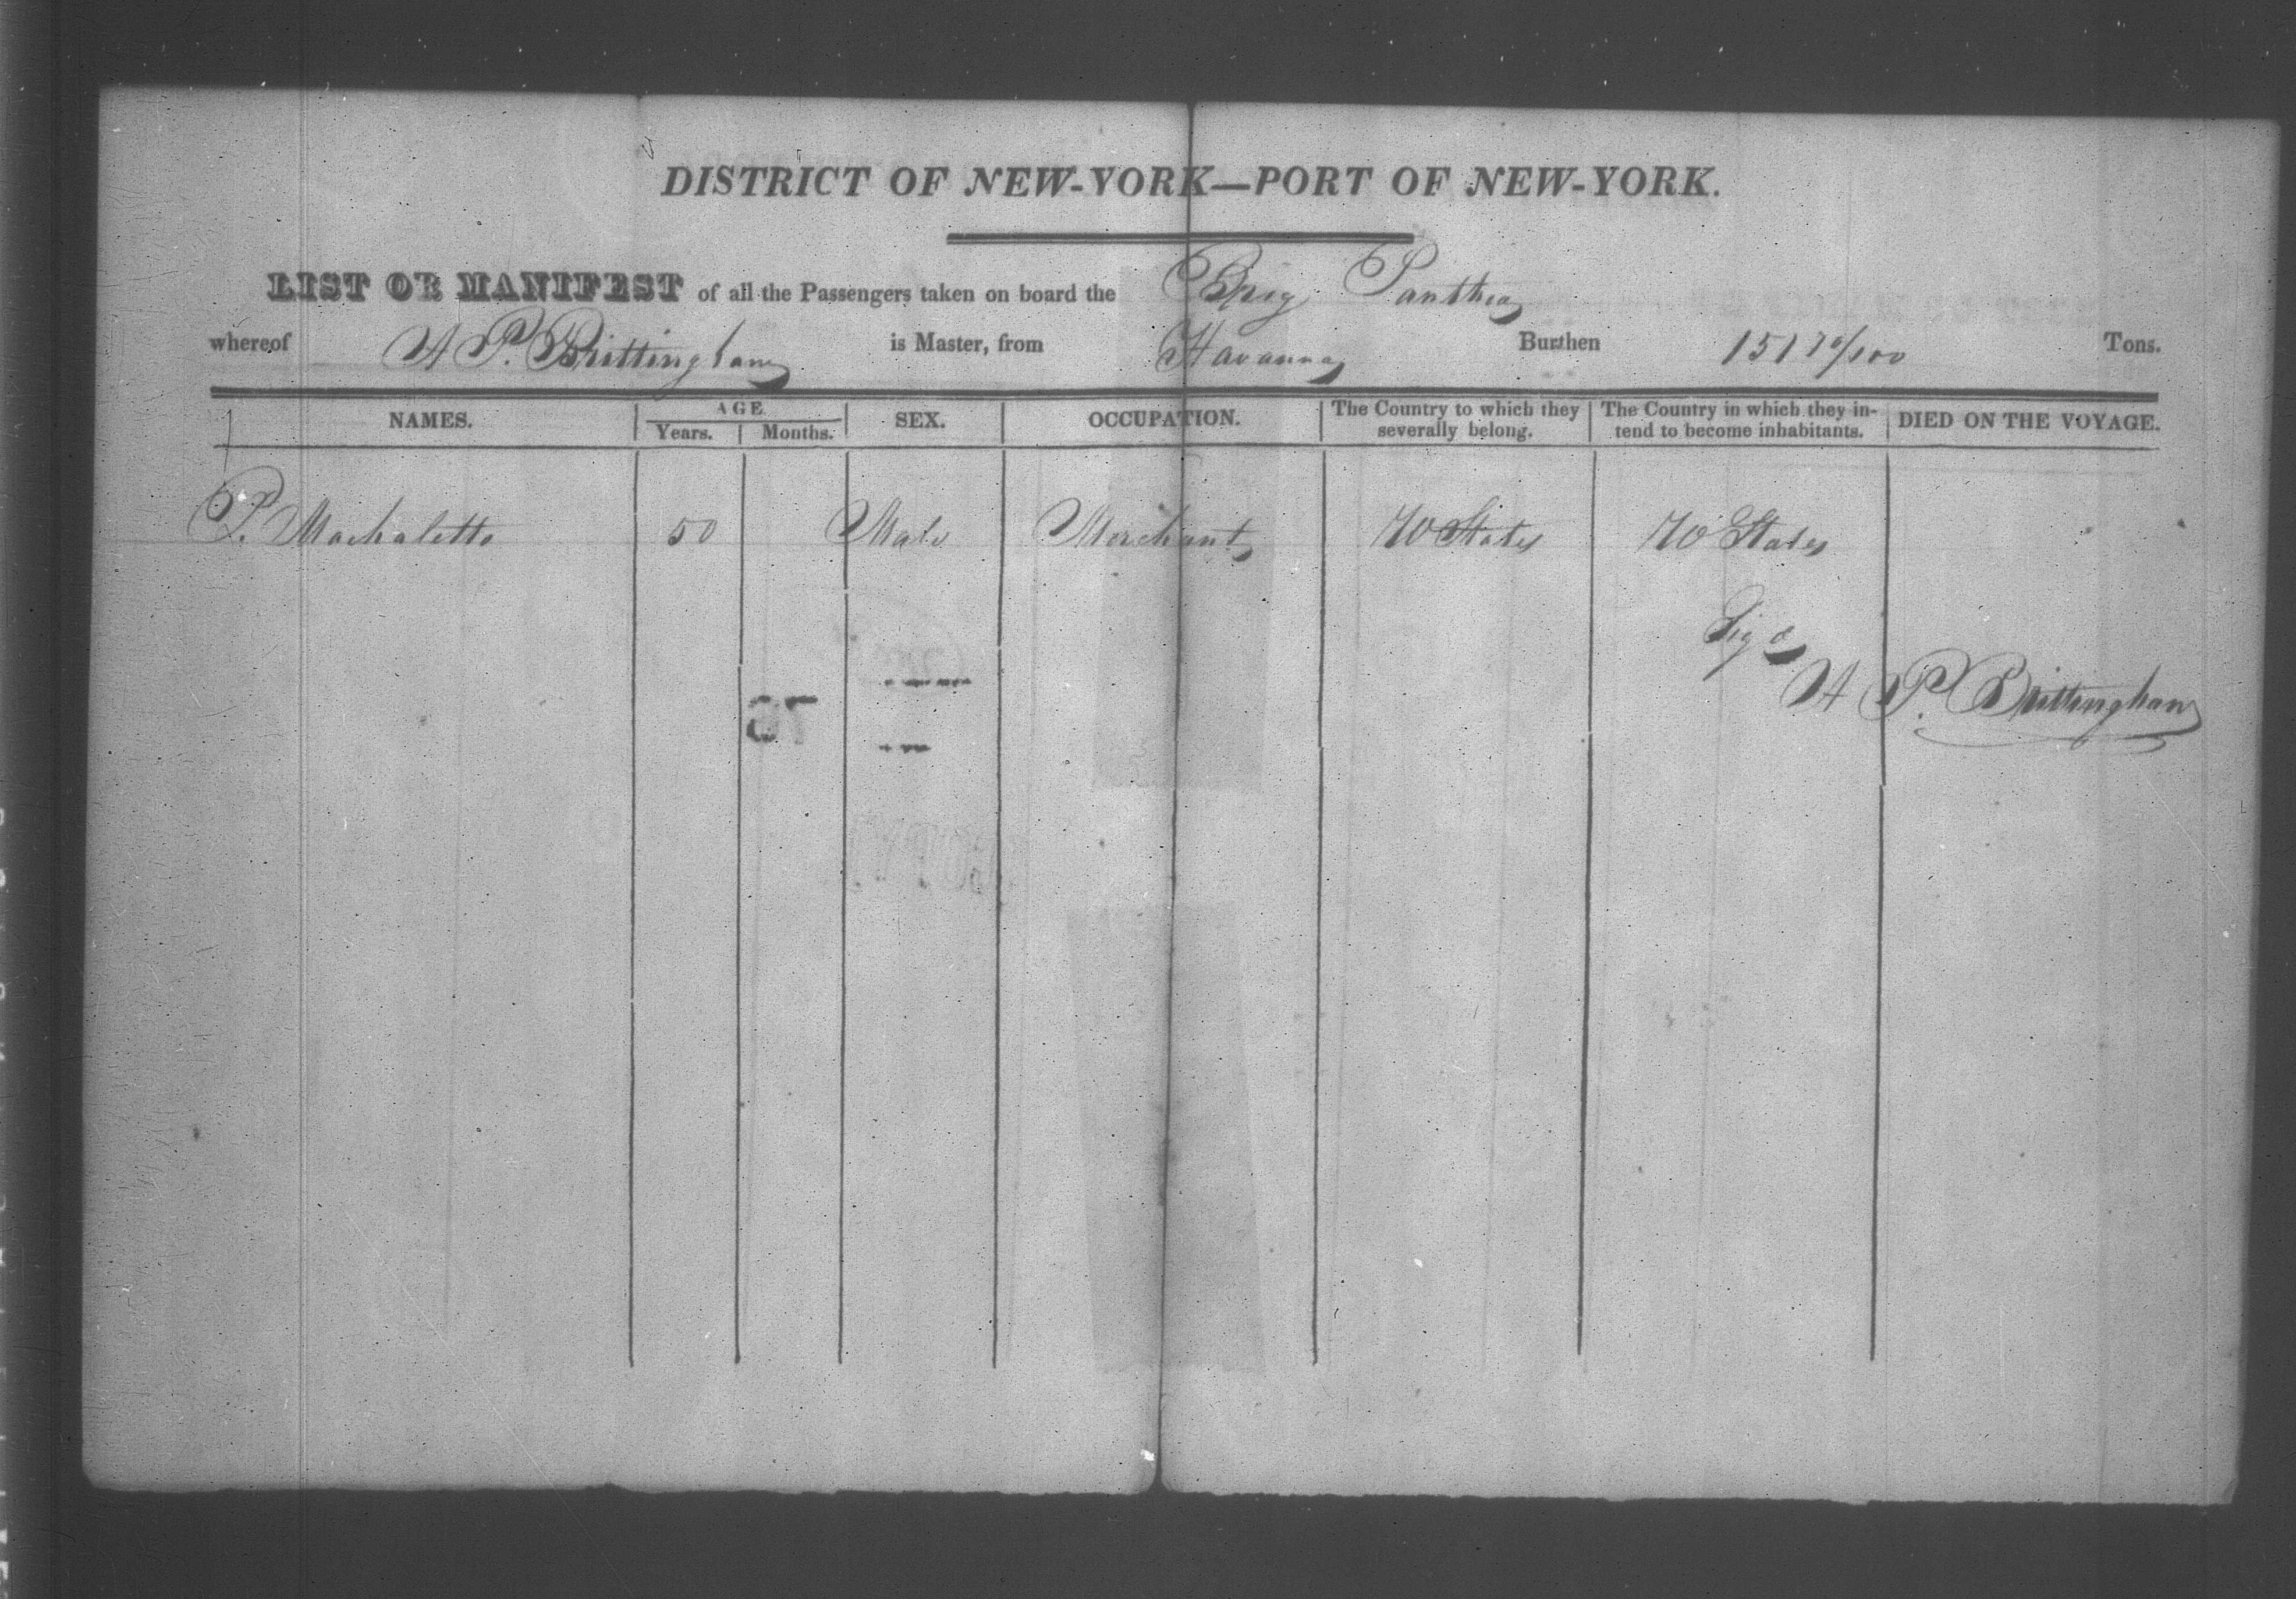 DISTRICT OF NEW-YORK—PORT OF NEW-YORK.
LIST OR MANIFEST of all the Passengers taken on board the Brig Panthea
whereof A P. Brittingham is Master, from Havanna Burthen 151 70/100 Tons.
NAMES. AGE Years. Months. SEX. OCCUPATION. The Country to which they severally belong. The Country in which they intend to become inhabitants. DIED ON THE VOYAGE.
P. Machaletto 50 Male Merchant U States U States
Sigd
A P. Brittingham